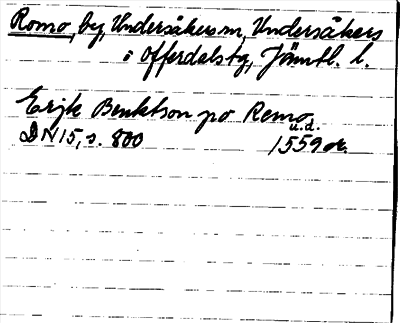 Romo, by, Undersåkers sn, Undersåkers
i Offerdals tg, Jämtl. l.
Erijk Benktson po Remo
u.d.
DN 15, s. 800 1559 or.